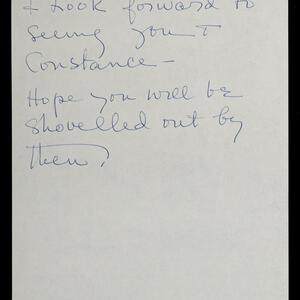 I look forward to
seeing you &
Constance -
Hope you will be
shovelled out by
then!